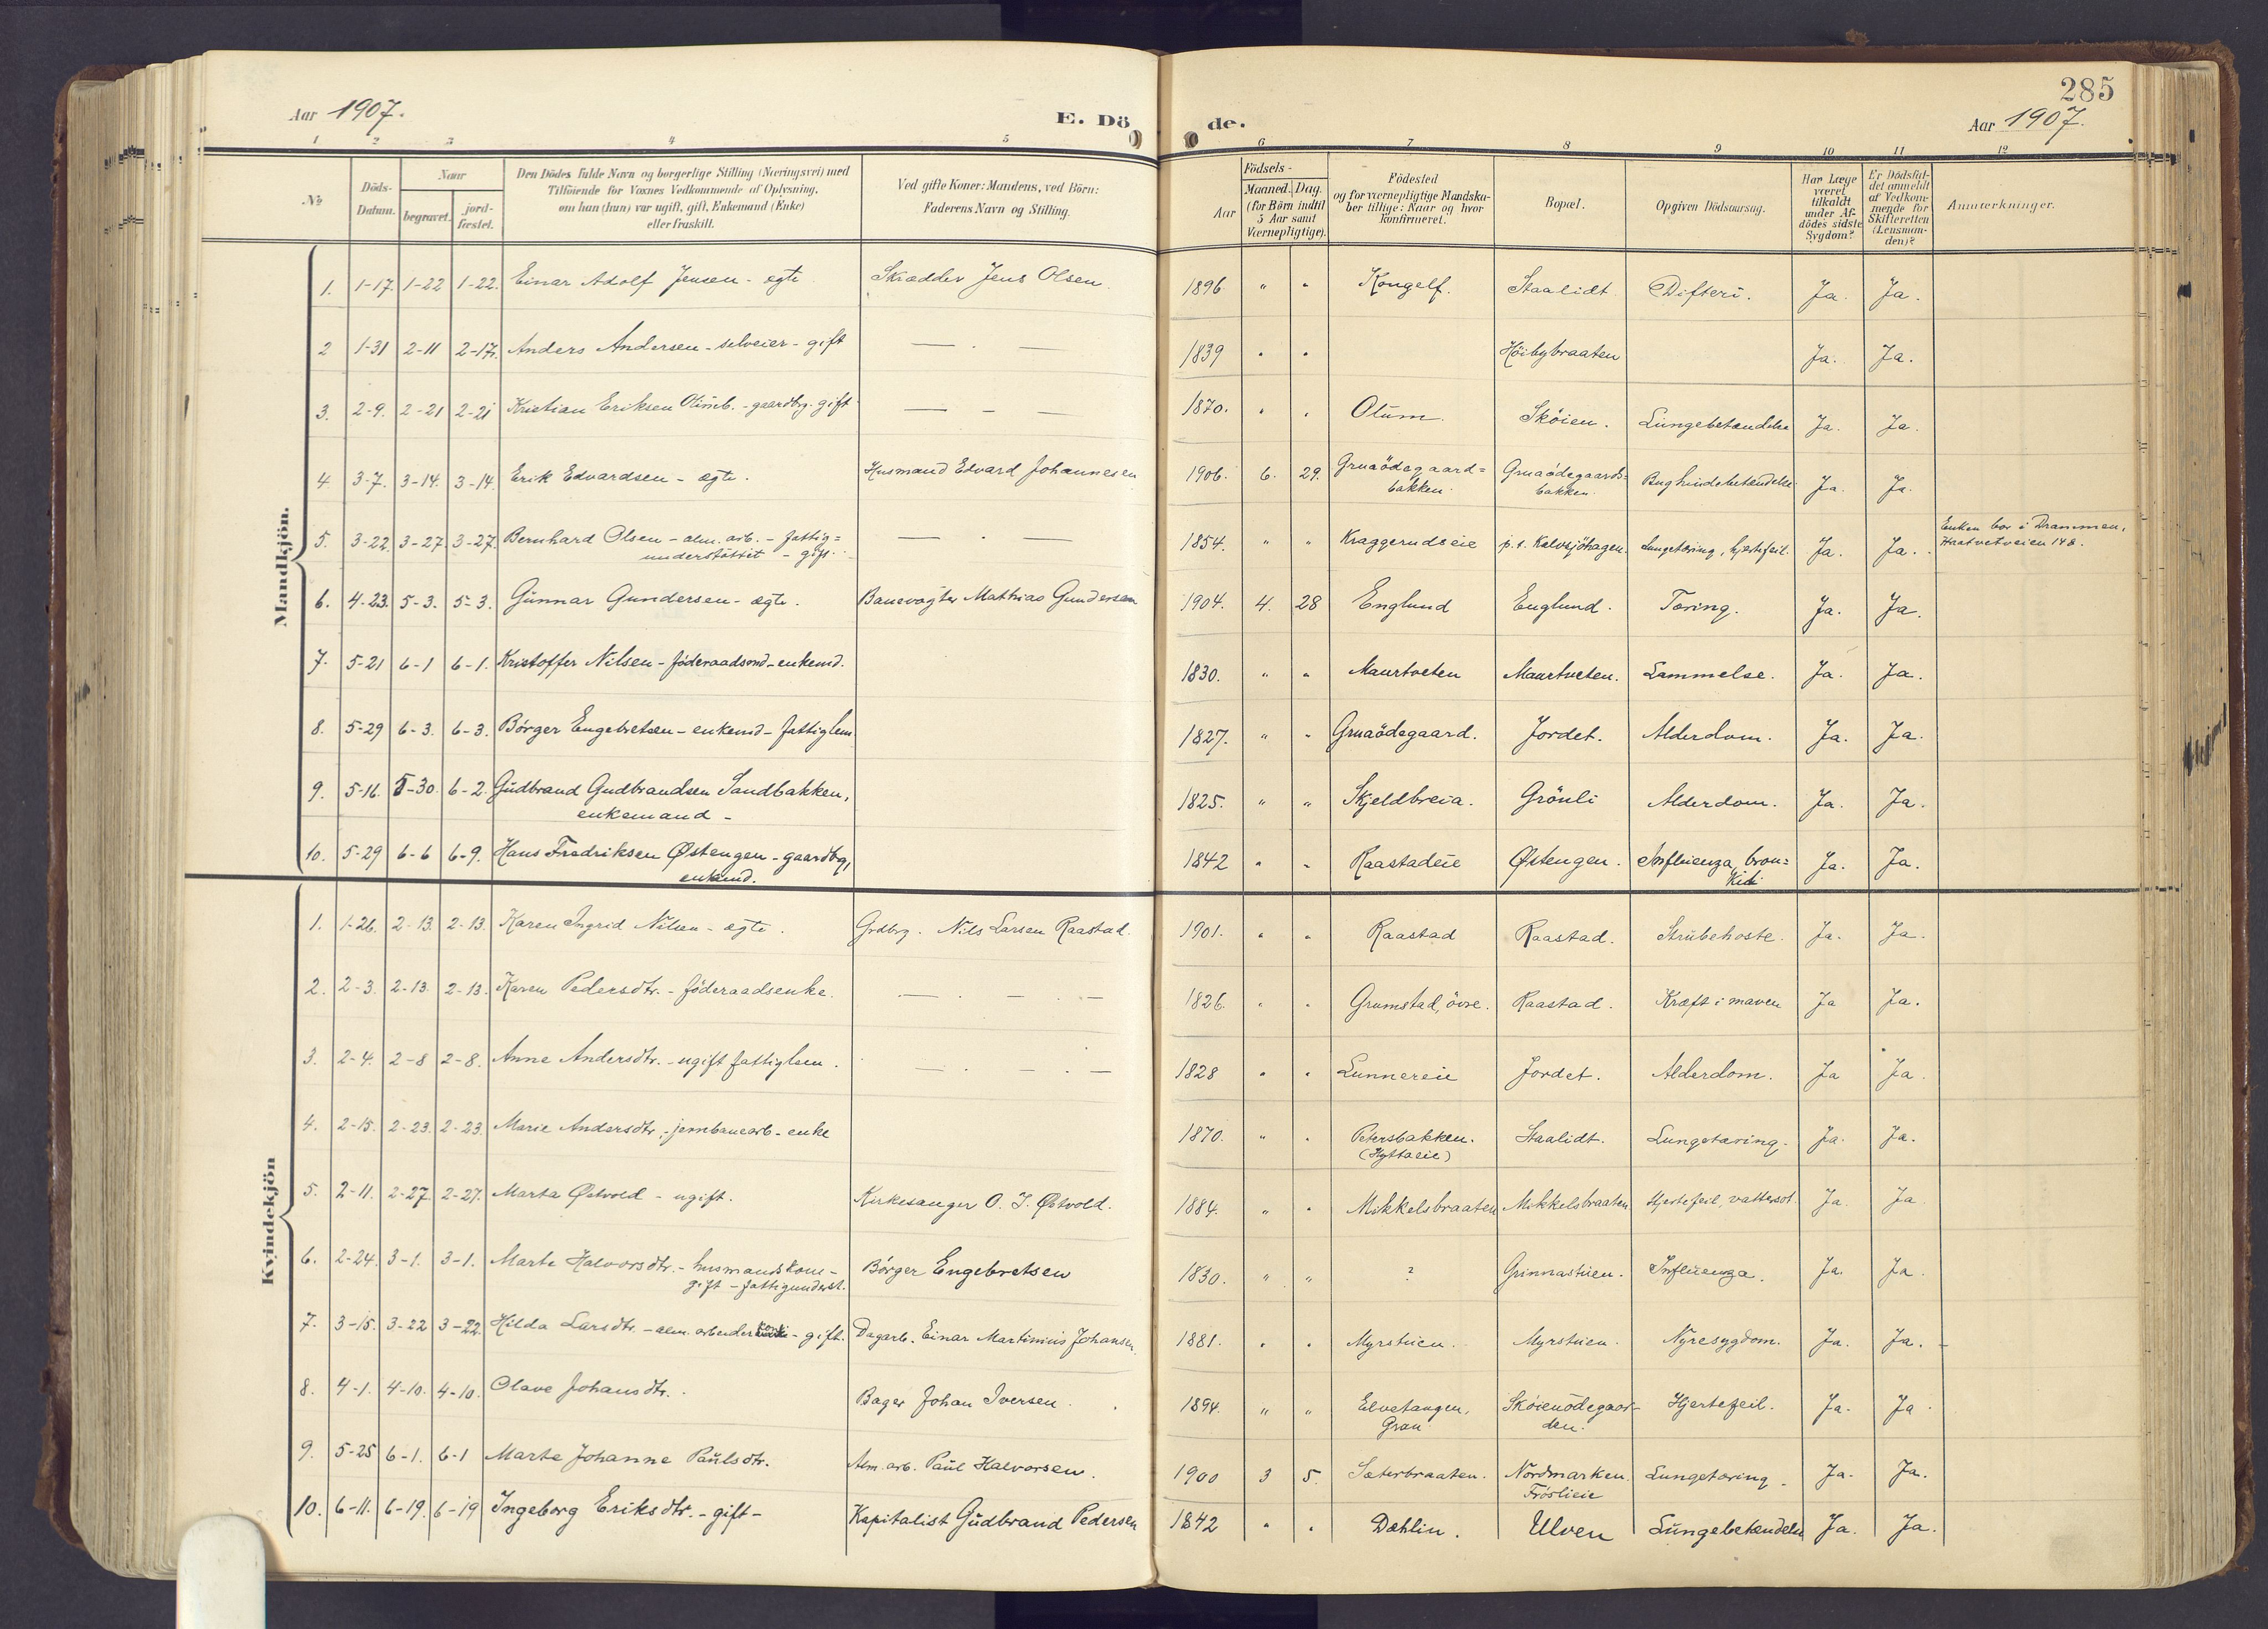 285
Aar 1907.
E. Dö
de.
Aar 1907.
1 2 3 4 5 6 7 8 9 10 11 12
No
Döds-Datum.
Naar
begravet.
jord-fæstet.
Den Dödes fulde Navn og borgerlige Stilling (Næringsvei) med
Tilföiende for Voxnes Vedkommende af Oplysning,
om han (hun) var ugift, gift, Enkemand (Enke)
eller fraskilt.
Ved gifte Koner: Mandens, ved Börn:
Faderens Navn og Stilling.
Födsels-
Aar
Maaned. Dag.
(for Börn indtil
5 Aar samt
Værnepligtige).
Födested
og for værnepligtige Mandska-
ber tillige: Naar og hvor
konfirmeret.
Bopæl.
Opgiven Dödsaarsag.
Har Læge
været
tilkaldt
under Af-
dödes sidste
Sygdom?
Er Dödsfal-
det anmeldt
af Vedkom-
mende for
Skifteretten
(Lensman-
den)?
Anmærkninger.
Mandkjön.
1. 1-17. 1-22 1-22. Einar Adolf Jensen - ægte Skrædder Jens Olsen. 1896 " " Kongelf. Staalidt. Difteri. Ja. Ja.
2 1-31 2-11 2-17. Anders Andersen - selveier - gift — . — 1839 " " Höibybraaten Ja. Ja.
3. 2-9. 2-21 2-21 Kristian Eriksen Olimb. - gaardbrg. gift — - — 1870. " " Olum. Skøien. Lungebetændelse Ja. Ja.
4 3-7. 3-14. 3-14. Erik Edvardsen - ægte. Husmand Edvard Johannesen 1906. 6. 29. Gruaödegaard=
bakken. Gruaödegaards=
bakken. Bughindebetændelse Ja. Ja.
5. 3-22. 3-27. 3-27. Bernhard Olsen - alm. arb. - fattig=
understöttet - gift. — . — 1854. " " Kraggerudseie p.t. Kalvsjöhagen. Lungetæring, hjertefeil. Ja. Ja. Enken bor i Drammen,
148.
6. 4-23. 5-3. 5-3. Gunnar Gundersen - ægte. Banevogter Mathias Gundersen 1904. 4. 28 Englund Englund. Tæring. Ja. Ja.
7. 5-21 6-1 6-1. Kristoffer Nilsen - föderaadsmd - enkemd. 1830. " " Maurtveten Maurtveten. Lammelse. Ja. Ja.
8. 5-29 6-3. 6-3. Børger Engebretsen - enkemd - fattiglem 1827. " " Gruaödegaard. Jordet. Alderdom. Ja. Ja.
9. 5-16. 5-30. 6-2. Gudbrand Gudbrandsen Sandbakken,
enkemand - 1825. " " Skjeldbreia. Grönli Alderdom. Ja. Ja.
10. 5-29 6-6 6-9. Hans Fredriksen Østengen - gaardbrg,
enkemd. 1842 " " Raastadeie Østengen. Influenza, bron=
kit Ja. Ja.
Kvindekjön
1. 1-26. 2-13. 2-13. Karen Ingrid Nilsen - ægte. Grdbrg. Nils Larsen Raastad. 1901. " " Raastad Raastad. Strubehoste. Ja. Ja.
2. 2-3. 2-13. 2-13. Karen Pedersdtr. - föderaadsenke. — . — . — 1826. " " Grumstad, övre. Raastad. Kræft i maven Ja Ja.
3. 2-4. 2-8 2-8. Anne Andersdtr. - ugift fattiglem. — . — . — 1828 " " Lunnereie Jordet. Alderdom. Ja Ja.
4. 2-15. 2-23. 2-23. Marie Andersdtr. - jernbanearb - enke 1870. " " Petersbakken.
(Hyttaeie) Staalidt. Lungetæring. Ja. Ja.
5. 2-11. 2-27. 2-27. Marta Østvold - ugift. Kirkesanger O. I. Østvold. 1884. " " Mikkelsbraaten Mikkelsbraaten Hjertefeil, vattersot. Ja. Ja
6. 2-24. 3-1. 3-1. Marte Halvorsdtr. - husmandskone -
gift - fattigunderst. Børger Engebretsen 1830. " " ? Grinnastuen. Influenza. Ja. Ja.
7. 3-15. 3-22 3-22. Hilda Larsdtr. - alm. arbeider kone - gift. Dagarb. Einar Martinius Johansen 1881. " " Myrstuen. Myrstuen. Nyresygdom. Ja. Ja. -
8. 4-1. 4-10. 4-10. Olave Johansdtr. Bager Johan Iversen. 1894. " " Elvetangen,
Gran. Skøienödegaar-
den. Hjertefeil. Ja. Ja.
9. 5-25 6-1. 6-1 Marte Johanne Paulsdtr. Alm. arb. Paul Halvorsen. 1900 3 5. Sæterbraaten. Nordmarken.
Fröslieie Lungetæring. Ja. Ja.
10. 6-11. 6-19. 6-19 Ingeborg Eriksdtr. - gift - Kapitalist Gudbrand Pedersen 1842 " " Dæhlin. Ulven Lungebetændelse Ja. Ja.